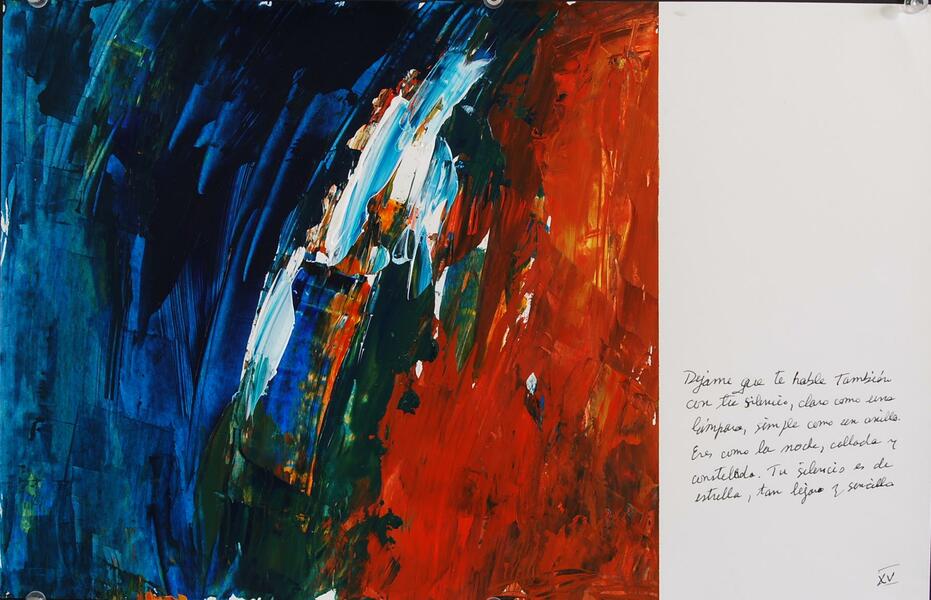 Dejame que te hable También
con tu silencio, claro como una
lámpara, simple como un anillo.
Eres como la noche, callada y
constelada. Tu silencio es de
estrella, tan lejano y sencillo
XV